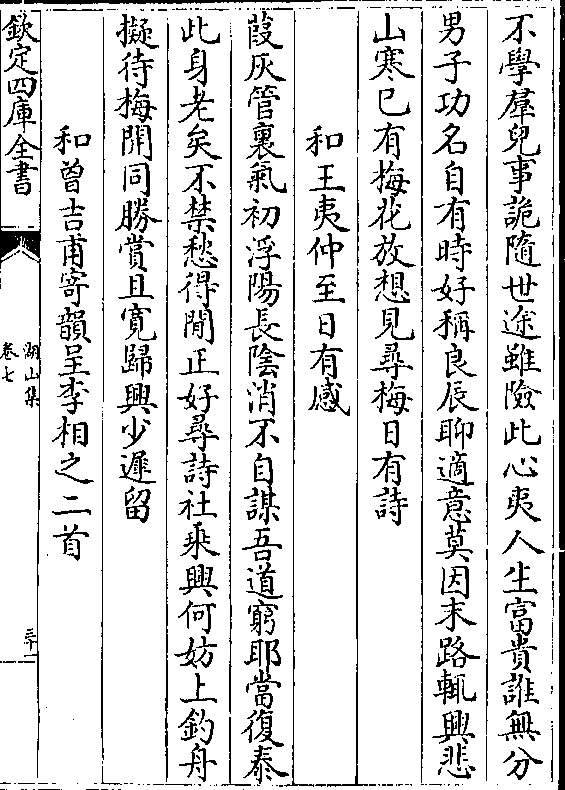 不學羣兒事詭隨世途雖險此心夷人生富貴誰無分
男子功名自有時好稱良辰聊適意莫因末路輒興悲
山寒已有梅花放想見尋梅日有詩
和王夷仲至日有感
葭灰管裏氣初浮陽長陰消不自謀吾道窮耶當復泰
此身老矣不禁愁得閒正好尋詩社乘興何妨上釣舟
擬待梅開同勝賞且寛歸興少遲留
和曾吉甫寄韻呈李相之二首
欽定四庫全書
湖山集
卷七